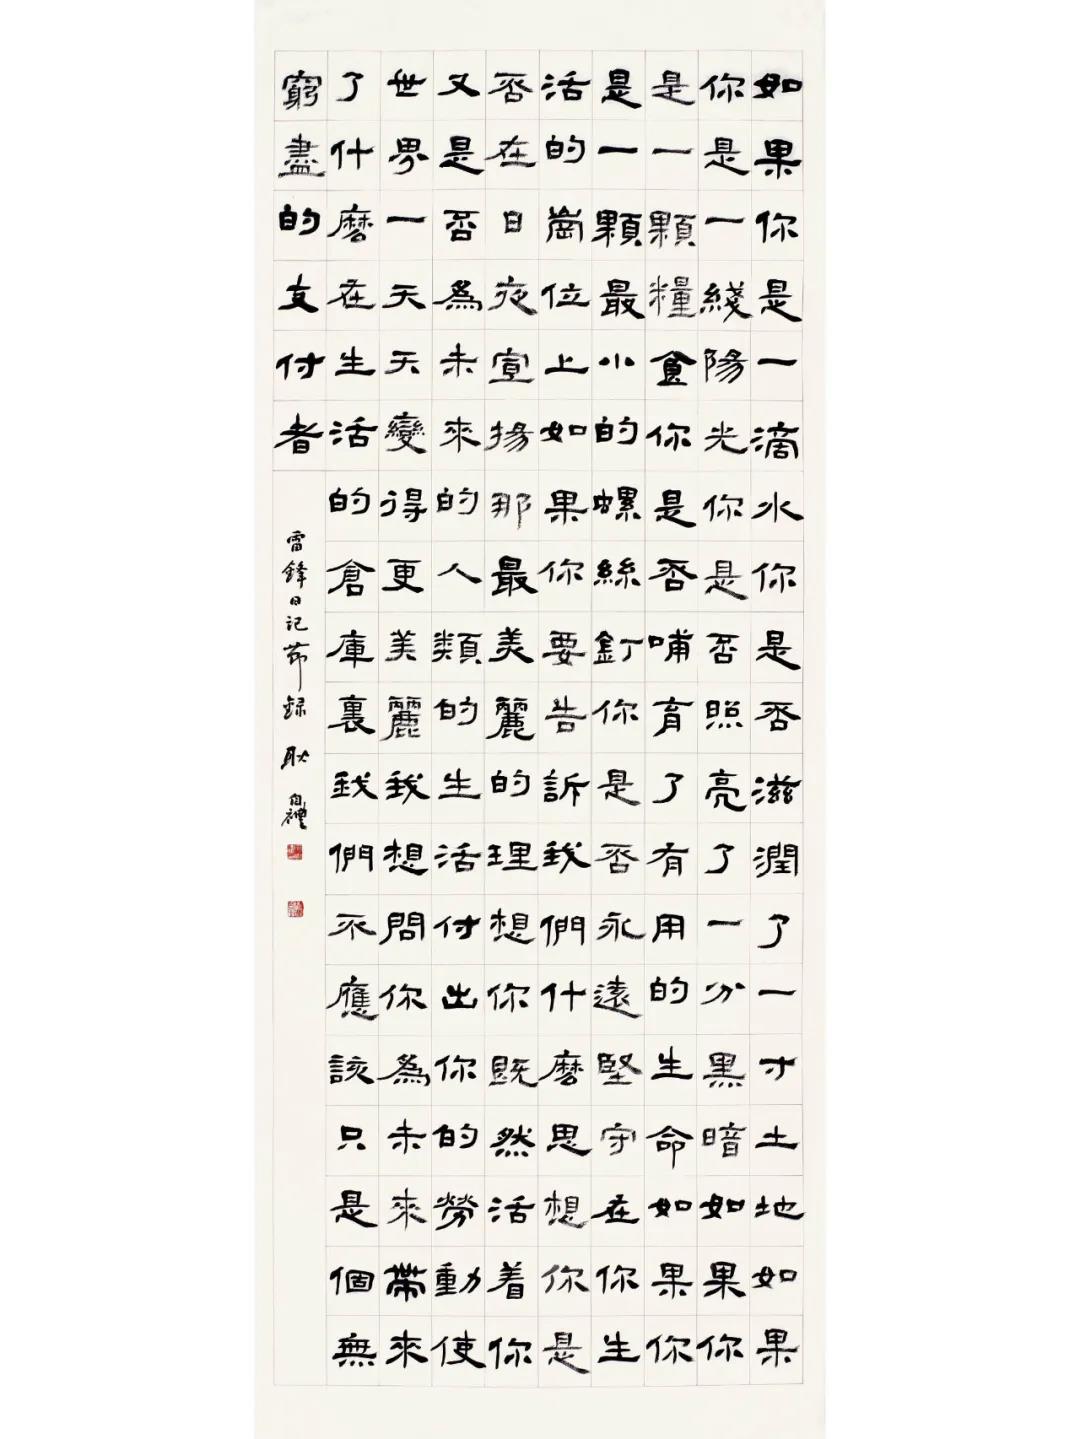 如果你是一滴水你是否滋潤了一寸土地如果
你是一綫陽光你是否照亮了一分黑暗如果你
是一顆糧食你是否哺育了有用的生命如果你
是一顆最小的螺絲釘你是否永遠堅守在你生
活的崗位上如果你要告訴我們什麼思想你是
否在日夜宣揚那最美麗的理想你既然活着你
又是否爲未來的人類的生活付出你的勞動使
世界一天天變得更美麗我想問你爲未來帶來
了什麼在生活的倉庫裏我們不應該只是個無
窮盡的支付者
雷鋒日記節録 耿自禮